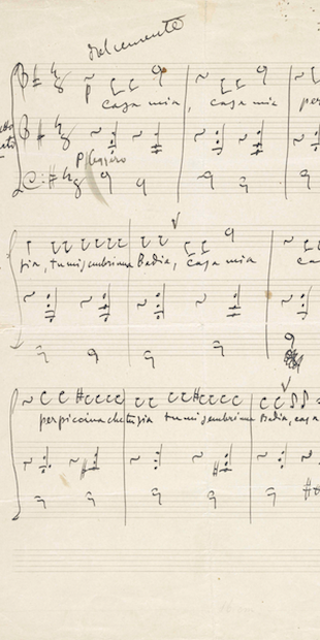 Dolcemente
p
casa mia, casa mia per
P leggero
sia, tu mi sembri una Badia, casa mia ca
per piccina che tu sia tu mi sembri una Badia, casa